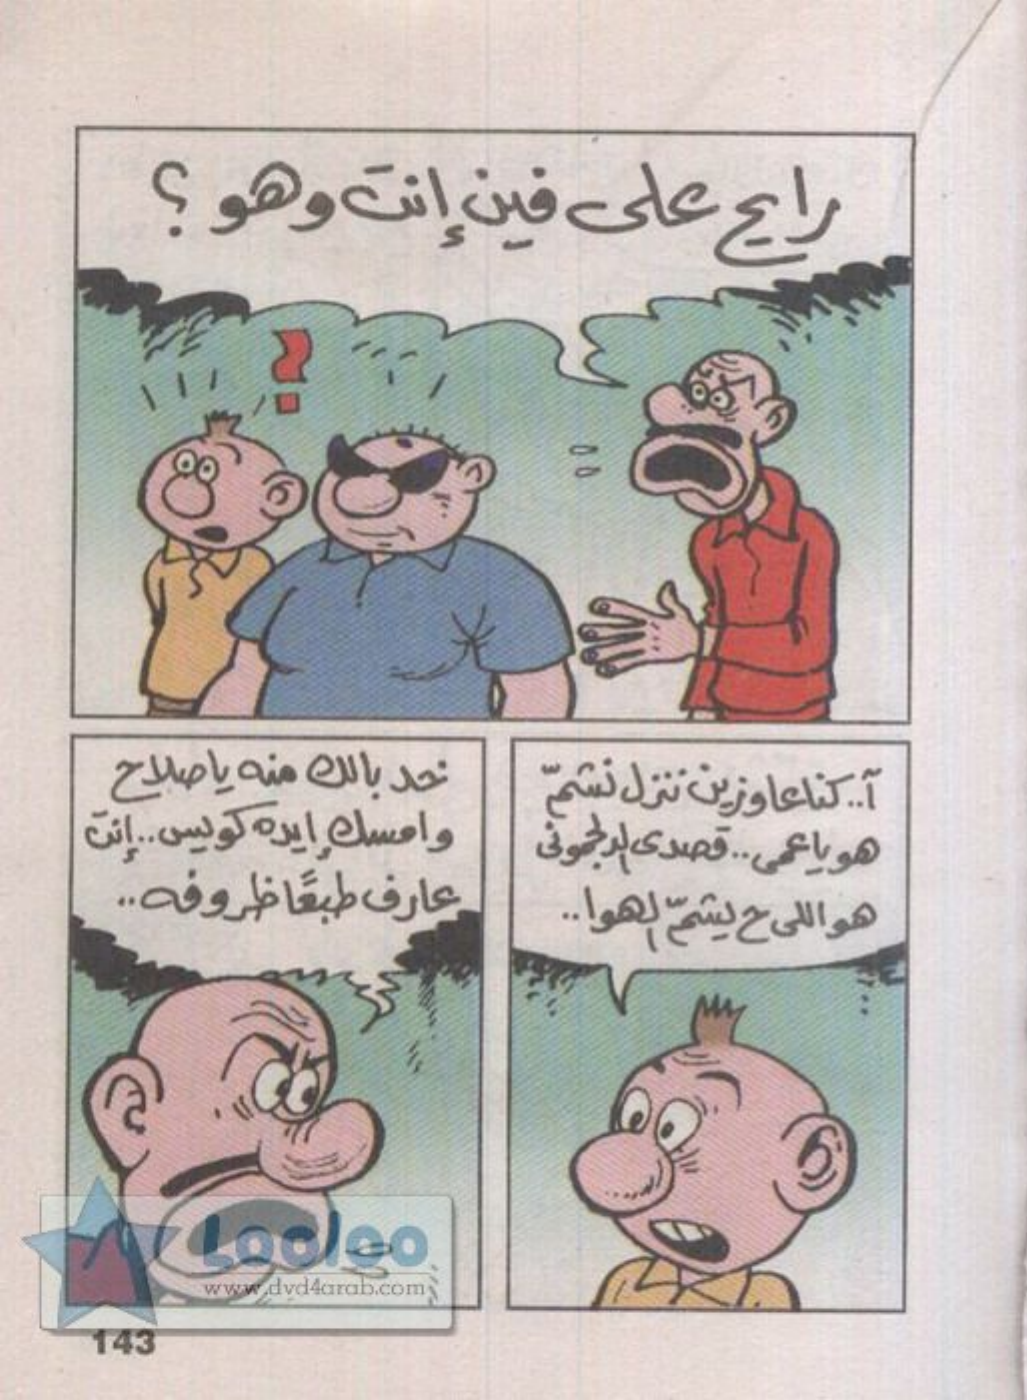 رايح على فين إنت وهو ؟
آ.. كنا عاوزين ننزل نشمّ
هو يا عمى.. قصدى الدلجمونى
هو اللى ح يشمّ الهوا..
خد بالك منه يا صلاح
وامسك إيده كويس.. إنت
عارف طبعًا ظروفه..
Looloo
www.dvd4arab.com
143